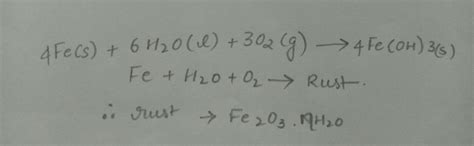 4Fe(s) + 6H2O(l) + 3O2(g) ⟶ 4Fe(OH)3(s)
Fe + H2O + O2 → Rust.
∴ rust → Fe2O3.nH2O